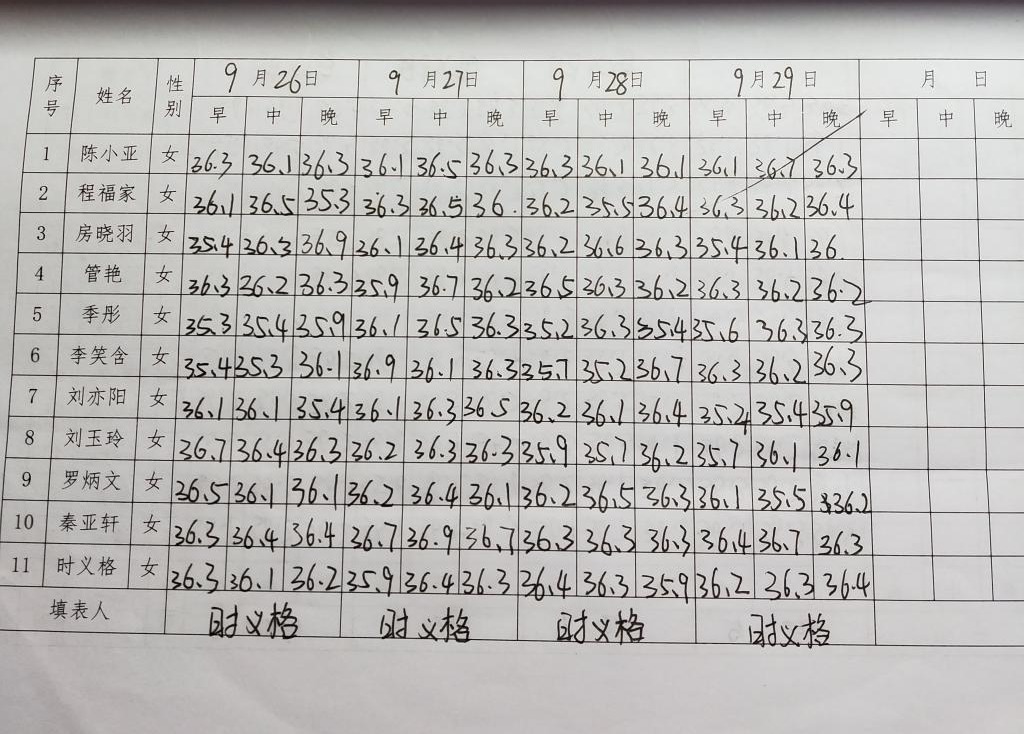 序号 姓名 性别 9月26日 9月27日 9月28日 9月29日 月 日
早 中 晚 早 中 晚 早 中 晚 早 中 晚 早 中 晚
1 陈小亚 女 36.3 36.1 36.3 36.1 36.5 36.3 36.3 36.1 36.1 36.1 36.7 36.3
2 程福家 女 36.1 36.5 35.3 36.3 36.5 36. 36.2 35.5 36.4 36.3 36.2 36.4
3 房晓羽 女 35.4 36.3 36.9 36.1 36.4 36.3 36.2 36.6 36.3 35.4 36.1 36.
4 管艳 女 36.3 36.2 36.3 35.9 36.7 36.2 36.5 36.3 36.2 36.3 36.2 36.2
5 季彤 女 35.3 35.4 35.9 36.1 36.5 36.3 35.2 36.3 35.4 35.6 36.3 36.3
6 李笑含 女 35.4 35.3 36.1 36.9 36.1 36.3 35.7 35.2 36.7 36.3 36.2 36.3
7 刘亦阳 女 36.1 36.1 35.4 36.1 36.3 36.5 36.2 36.1 36.4 35.24 35.4 35.9
8 刘玉玲 女 36.7 36.4 36.3 36.2 36.3 36.3 35.9 35.7 36.2 35.7 36.1 36.1
9 罗炳文 女 36.5 36.1 36.1 36.2 36.4 36.1 36.2 36.5 36.3 36.1 35.5 36.2
10 秦亚轩 女 36.3 36.4 36.4 36.7 36.9 36.7 36.3 36.3 36.3 36.4 36.7 36.3
11 时义格 女 36.3 36.1 36.2 35.9 36.4 36.3 36.4 36.3 35.9 36.2 36.3 36.4
填表人 时义格 时义格 时义格 时义格